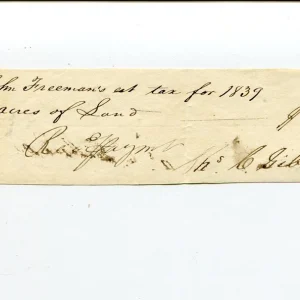 hn Freeman's est tax for 1839
acres of Land
Recd Paymt
Ths. C. Gil